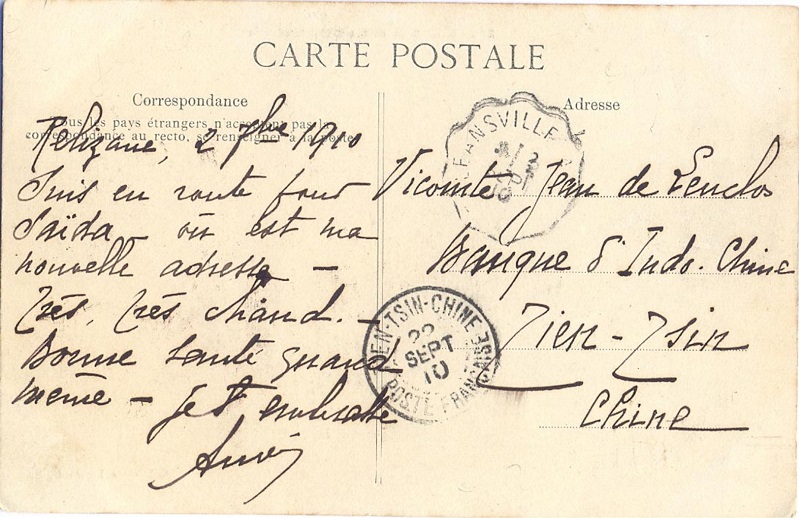 CARTE POSTALE
Correspondance
Tous les pays étrangers n'acceptent pas la
correspondance au recto, se renseigner à la poste
Relizane, 2 7bre 1910
Suis en route pour
Saïda - où est ma
nouvelle adresse -
Très, très chaud. -
Bonne santé quand
même - Je t'embrasse
Adresse
Vicomte Jean de Lenclos
Banque d'Indo-Chine
Tien-Tsin
Chine
ORLEANSVILLE
TIEN-TSIN-CHINE
22
SEPT
10
POSTE FRANÇAISE